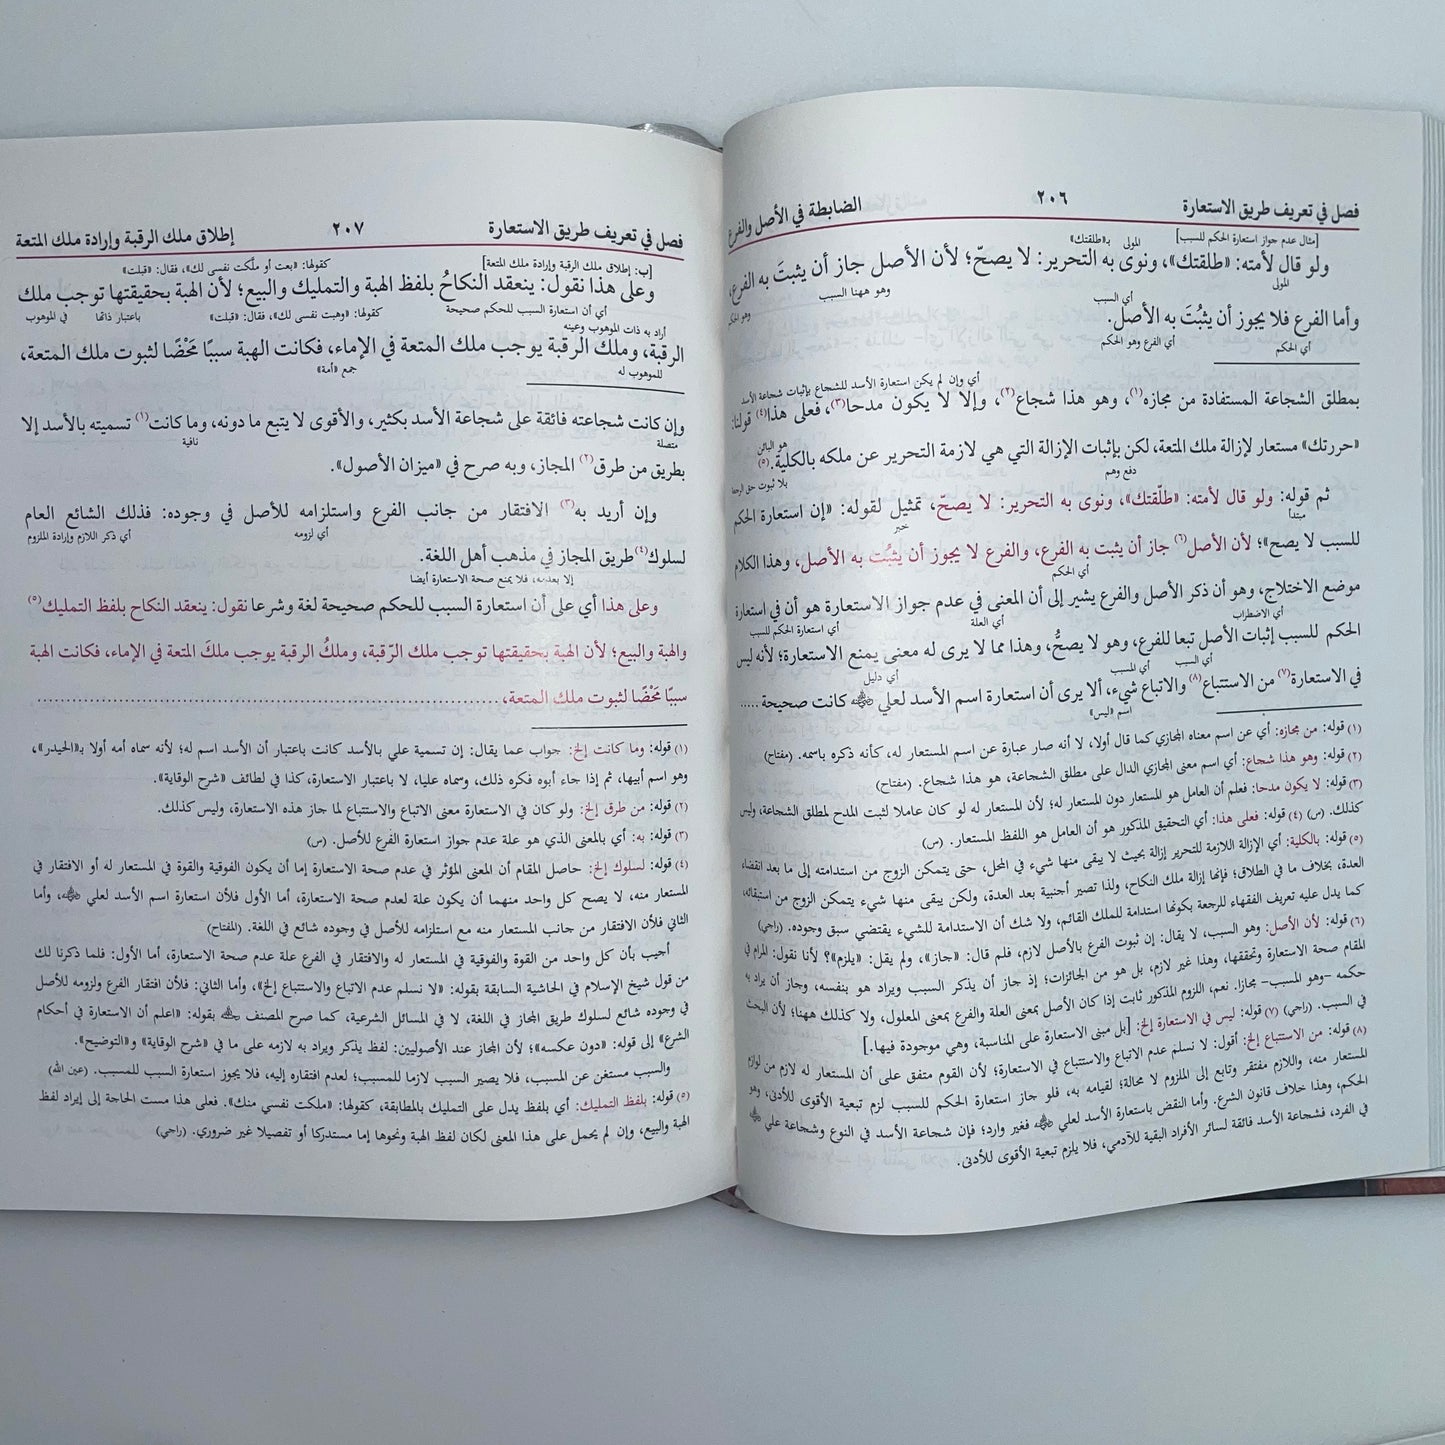 فصل في تعريف طريق الاستعارة ٢٠٦ الضابطة في الأصل والفرع
[مثال عدم جواز استعارة الحكم للسبب] المولى بـ«طلقتك»
ولو قال لأمته: «طلقتك»، ونوى به التحرير: لا يصحّ؛ لأن الأصل جاز أن يثبتَ به الفرع،
المولى وهو ههنا السبب وهو الحكم
أي السبب
وأما الفرع فلا يجوز أن يثبُتَ به الأصل.
أي الحكم أي الفرع وهو الحكم
أي وإن لم يكن استعارة الأسد للشجاع بإثبات شجاعة الأسد
بمطلق الشجاعة المستفادة من مجازه(١)، وهو هذا شجاع(٢)، وإلا لا يكون مدحا(٣)، فعلى هذا(٤) قولنا:
هو البائن
«حررتك» مستعار لإزالة ملك المتعة، لكن بإثبات الإزالة التي هي لازمة التحرير عن ملكه بالكلية.(٥)
دفع وهم بلا ثبوت حق الرجعة
ثم قوله: ولو قال لأمته: «طلّقتك»، ونوى به التحرير: لا يصحّ، تمثيل لقوله: «إن استعارة الحكم
مبتدأ خبر
للسبب لا يصح»؛ لأن الأصل(٦) جاز أن يثبت به الفرع، والفرع لا يجوز أن يثبُت به الأصل، وهذا الكلام
أي الحكم
موضع الاختلاج، وهو أن ذكر الأصل والفرع يشير إلى أن المعنى في عدم جواز الاستعارة هو أن في استعارة
أي الاضطراب أي العلة أي استعارة الحكم للسبب
الحكم للسبب إثبات الأصل تبعا للفرع، وهو لا يصحُّ، وهذا مما لا يرى له معنى يمنع الاستعارة؛ لأنه ليس
أي السبب أي المسبب أي دليل
في الاستعارة(٧) من الاستتباع(٨) والاتباع شيء، ألا يرى أن استعارة اسم الأسد لعلي ﷺ كانت صحيحة .....
اسم «ليس»
(١) قوله: من مجازه: أي عن اسم معناه المجازي كما قال أولا، لا أنه صار عبارة عن اسم المستعار له، كأنه ذكره باسمه. (مفتاح)
(٢) قوله: وهو هذا شجاع: أي اسم معنى المجازي الدال على مطلق الشجاعة، هو هذا شجاع. (مفتاح)
(٣) قوله: لا يكون مدحا: فعلم أن العامل هو المستعار دون المستعار له؛ لأن المستعار له لو كان عاملا لثبت المدح لمطلق الشجاعة، وليس
كذلك. (س) (٤) قوله: فعلى هذا: أي التحقيق المذكور هو أن العامل هو اللفظ المستعار. (س)
(٥) قوله: بالكلية: أي الإزالة اللازمة للتحرير إزالة بحيث لا يبقى منها شيء في المحل، حتى يتمكن الزوج من استدامته إلى ما بعد انقضاء
العدة، بخلاف ما في الطلاق؛ فإنها إزالة ملك النكاح، ولذا تصير أجنبية بعد العدة، ولكن يبقى منها شيء يتمكن الزوج من استبقائه،
كما يدل عليه تعريف الفقهاء للرجعة بكونها استدامة للملك القائم، ولا شك أن الاستدامة للشيء يقتضي سبق وجوده. (راجي)
(٦) قوله: لأن الأصل: وهو السبب، لا يقال: إن ثبوت الفرع بالأصل لازم، فلم قال: «جاز»، ولم يقل: «يلزم»؟ لأنا نقول: المرام في
المقام صحة الاستعارة وتحققها، وهذا غير لازم، بل هو من الجائزات؛ إذ جاز أن يذكر السبب ويراد هو بنفسه، وجاز أن يراد به
حكمه -وهو المسبب- مجازا. نعم، اللزوم المذكور ثابت إذا كان الأصل بمعنى العلة والفرع بمعنى المعلول، ولا كذلك ههنا؛ لأن البحث
في السبب. (راجي) (٧) قوله: ليس في الاستعارة إلخ: [بل مبنى الاستعارة على المناسبة، وهي موجودة فيها.]
(٨) قوله: من الاستتباع إلخ: أقول: لا نسلم عدم الاتباع والاستتباع في الاستعارة؛ لأن القوم متفق على أن المستعار له لازم من لوازم
المستعار منه، واللازم مفتقر وتابع إلى الملزوم لا محالة؛ لقيامه به، فلو جاز استعارة الحكم للسبب لزم تبعية الأقوى للأدنى، وهو
الحكم، وهذا خلاف قانون الشرع. وأما النقض باستعارة الأسد لعلي ﷺ فغير وارد؛ فإن شجاعة الأسد في النوع وشجاعة علي ﷺ
في الفرد، فشجاعة الأسد فائقة لسائر الأفراد البقية للآدمي، فلا يلزم تبعية الأقوى للأدنى.
فصل في تعريف طريق الاستعارة ٢٠٧ إطلاق ملك الرقبة وإرادة ملك المتعة
[ب: إطلاق ملك الرقبة وإرادة ملك المتعة] كقولها: «بعت أو ملّكت نفسي لك»، فقال: «قبلت»
وعلى هذا نقول: ينعقد النكاحُ بلفظ الهبة والتمليك والبيع؛ لأن الهبة بحقيقتها توجب ملك
أي أن استعارة السبب للحكم صحيحة كقولها: «وهبت نفسي لك»، فقال: «قبلت» باعتبار ذاتها في الموهوب
أراد به ذات الموهوب وعينه
الرقبة، وملك الرقبة يوجب ملك المتعة في الإماء، فكانت الهبة سببًا مَحْضًا لثبوت ملك المتعة،
للموهوب له جمع «أمة»
وإن كانت شجاعته فائقة على شجاعة الأسد بكثير، والأقوى لا يتبع ما دونه، وما كانت(١) تسميته بالأسد إلا
متصلة نافية
بطريق من طرق(٢) المجاز، وبه صرح في «ميزان الأصول».
وإن أريد به(٣) الافتقار من جانب الفرع واستلزامه للأصل في وجوده: فذلك الشائع العام
أي لزومه أي ذكر اللازم وإرادة الملزوم
لسلوك(٤) طريق المجاز في مذهب أهل اللغة.
إلا بعدمه، فلا يمنع صحة الاستعارة أيضا
وعلى هذا أي على أن استعارة السبب للحكم صحيحة لغة وشرعا نقول: ينعقد النكاح بلفظ التمليك(٥)
والهبة والبيع؛ لأن الهبة بحقيقتها توجب ملك الرّقبة، وملكُ الرقبة يوجب ملكَ المتعة في الإماء، فكانت الهبة
سببًا مَحْضًا لثبوت ملك المتعة، ..........................................................................
(١) قوله: وما كانت إلخ: جواب عما يقال: إن تسمية علي بالأسد كانت باعتبار أن الأسد اسم له؛ لأنه سماه أمه أولا بـ«الحيدر»،
وهو اسم أبيها، ثم إذا جاء أبوه فكره ذلك، وسماه عليا، لا باعتبار الاستعارة، كذا في لطائف «شرح الوقاية».
(٢) قوله: من طرق إلخ: ولو كان في الاستعارة معنى الاتباع والاستتباع لما جاز هذه الاستعارة، وليس كذلك.
(٣) قوله: به: أي بالمعنى الذي هو علة عدم جواز استعارة الفرع للأصل. (س)
(٤) قوله: لسلوك إلخ: حاصل المقام أن المعنى المؤثر في عدم صحة الاستعارة إما أن يكون الفوقية والقوة في المستعار له أو الافتقار في
المستعار منه، لا يصح كل واحد منهما أن يكون علة لعدم صحة الاستعارة، أما الأول فلأن استعارة اسم الأسد لعلي ﷺ، وأما
الثاني فلأن الافتقار من جانب المستعار منه مع استلزامه للأصل في وجوده شائع في اللغة. (المفتاح)
أجيب بأن كل واحد من القوة والفوقية في المستعار له والافتقار في الفرع علة عدم صحة الاستعارة، أما الأول: فلما ذكرنا لك
من قول شيخ الإسلام في الحاشية السابقة بقوله: «لا نسلم عدم الاتباع والاستتباع إلخ»، وأما الثاني: فلأن افتقار الفرع ولزومه للأصل
في وجوده شائع لسلوك طريق المجاز في اللغة، لا في المسائل الشرعية، كما صرح المصنف بقوله: «اعلم أن الاستعارة في أحكام
الشرع» إلى قوله: «دون عكسه»؛ لأن المجاز عند الأصوليين: لفظ يذكر ويراد به لازمه على ما في «شرح الوقاية» و«التوضيح».
والسبب مستغن عن المسبب، فلا يصير السبب لازما للمسبب؛ لعدم افتقاره إليه، فلا يجوز استعارة السبب للمسبب. (عين الله)
(٥) قوله: بلفظ التمليك: أي بلفظ يدل على التمليك بالمطابقة، كقولها: «ملكت نفسي منك». فعلى هذا مست الحاجة إلى إيراد لفظ
الهبة والبيع، وإن لم يحمل على هذا المعنى لكان لفظ الهبة ونحوها إما مستدركا أو تفصيلا غير ضروري. (راجي)